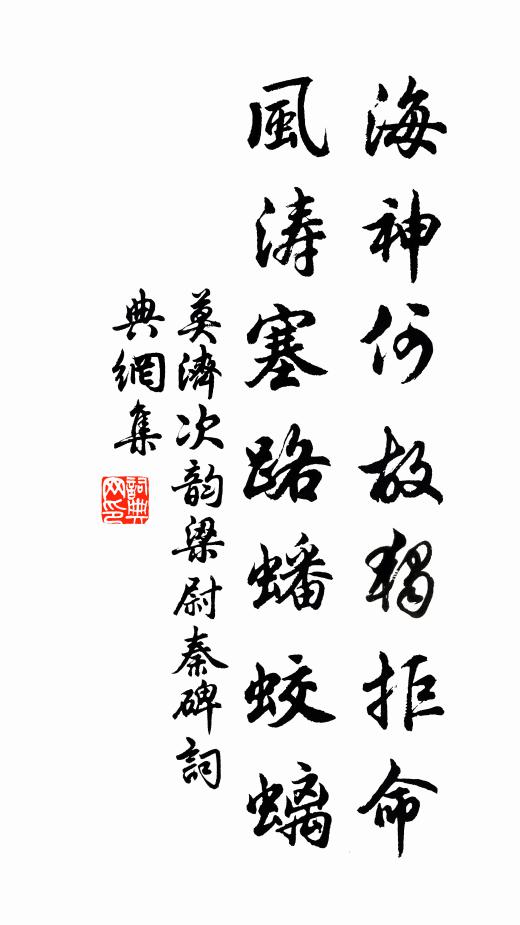 海神何故獨拒命
風涛塞路蟠蛟螭
莫濟次韵梁尉秦碑詞
典網集
詞典网印